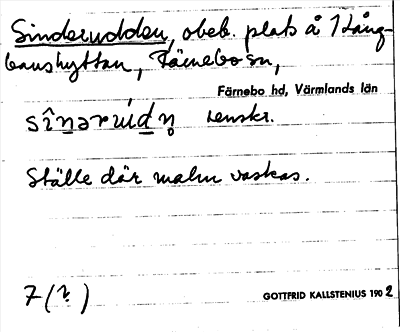 Sinderudden, obeb. plats å Lång-
banshyttan, Färnebo sn,
Färnebo hd, Värmlands län
Ställe där malm vaskas.
7 (?)
GOTTFRID KALLSTENIUS 1902